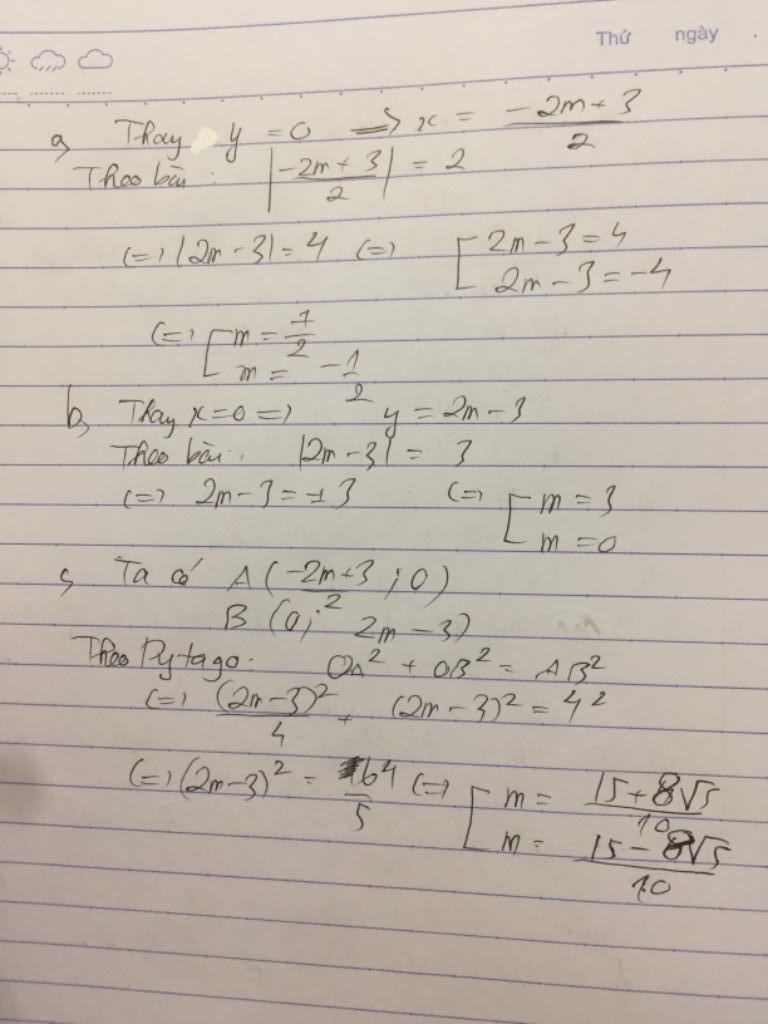 Thứ ngày
a, Thay y = 0 => x = (-2m+3)/2
Theo bài: |(-2m+3)/2| = 2
(=) |2m-3| = 4 (=) [ 2m-3 = 4
2m-3 = -4
(=) [ m = 7/2
m = -1/2
b, Thay x=0 => y = 2m-3
Theo bài: |2m-3| = 3
(=) 2m-3 = ±3 (=) [ m = 3
m = 0
c, Ta có A((-2m+3)/2; 0)
B(0; 2m-3)
Theo Pytago: OA² + OB² = AB²
(=) (2m-3)²/4 + (2m-3)² = 4²
(=) (2m-3)² = 64/5 (=) [ m = (15+8√5)/10
m = (15-8√5)/10